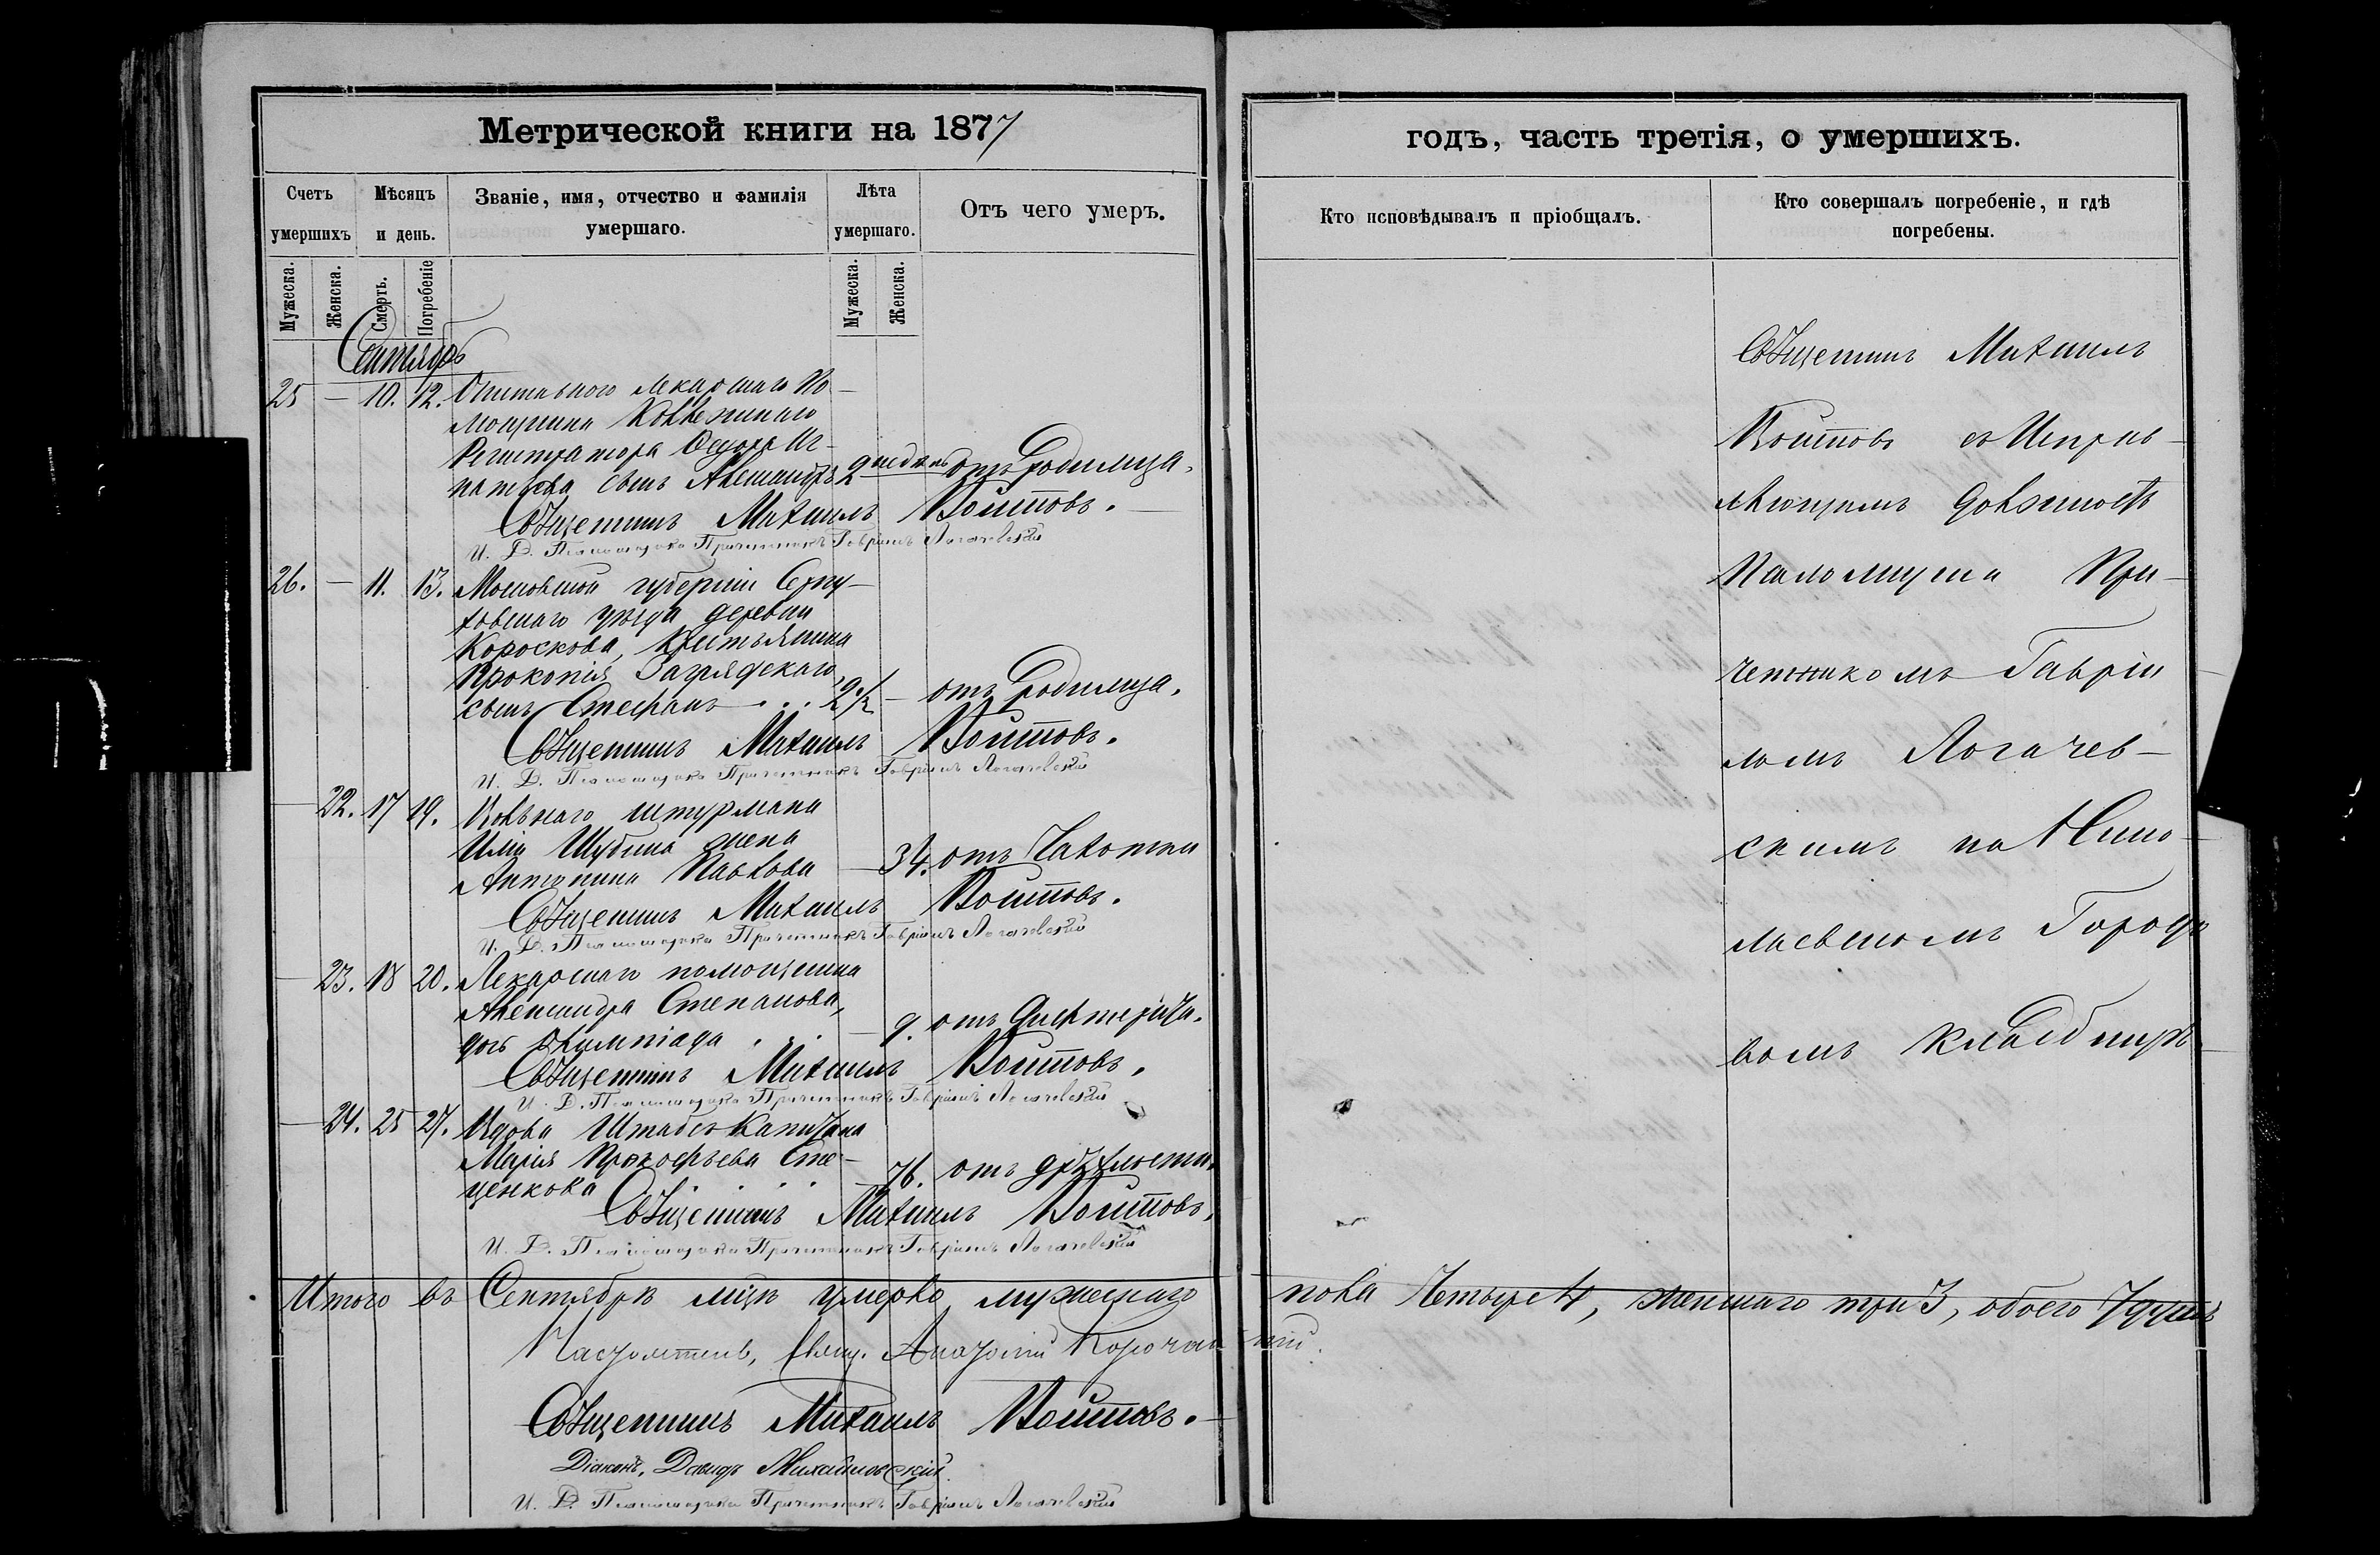 Метрической книги на 1877
годъ, часть третія, о умершихъ.
Счетъ умершихъ
Мѣсяцъ и день.
Званіе, имя, отчество и фамилія умершаго.
Лѣта умершаго.
Отъ чего умеръ.
Кто исповѣдывалъ и пріобщалъ.
Кто совершалъ погребеніе, и гдѣ погребены.
Мужеска.
Женска.
Смерть.
Погребеніе
Мужеска.
Женска.
Сентябрь
25 — 10. 12. лекарскаго по-
мощника Коллежскаго
Регистратора Иг-
натьева сынъ Александръ 2 недѣль отъ родимца.
Священникъ Михаилъ Войтовъ.
И. Д. Псаломщика Причетникъ Гавріилъ Логачевскій
26. — 11. 13. Московской губерніи Серпу-
ховскаго уѣзда деревни
Короскова, Крестьянина
Прокопія Загрядскаго
сынъ Стефанъ . . . 2½ — отъ родимца.
Священникъ Михаилъ Войтовъ.
И. Д. Псаломщика Причетникъ Гавріилъ Логачевскій
— 22. 17 19. Вольнаго штурмана
Иліи Шубина жена
Антонина Павлова — 34. отъ Чахотки
Священникъ Михаилъ Войтовъ.
И. Д. Псаломщика Причетникъ Гавріилъ Логачевскій
— 23. 18 20. Лекарскаго помощника
Александра Степанова,
дочь Олимпіада . . . — 9. отъ Дифтерита.
Священникъ Михаилъ Войтовъ.
И. Д. Псаломщика Причетникъ Гавріилъ Логачевскій
— 24. 25 27. Вдова Штабсъ-Капитана
Марія Прокофьева Сте-
ценкова . . . . — 76. отъ дряхлости.
Священникъ Михаилъ Войтовъ.
И. Д. Псаломщика Причетникъ Гавріилъ Логачевскій
Священникъ Михаилъ
Войтовъ съ Исправ-
ляющимъ должность
Псаломщика При-
четникомъ Гавріи-
ломъ Логачев-
скимъ на Нико-
лаевскомъ Городо-
вомъ кладбищѣ
Итого въ Сентябрѣ мцѣ умерло мужескаго пола Четыре 4, женскаго три 3, обоего 7 душъ
Настоятель, свящ. Корочан скій.
Священникъ Михаилъ Войтовъ.
Діаконъ, Давидъ Михайловскій.
И. Д. Псаломщика Причетникъ Гавріилъ Логачевскій